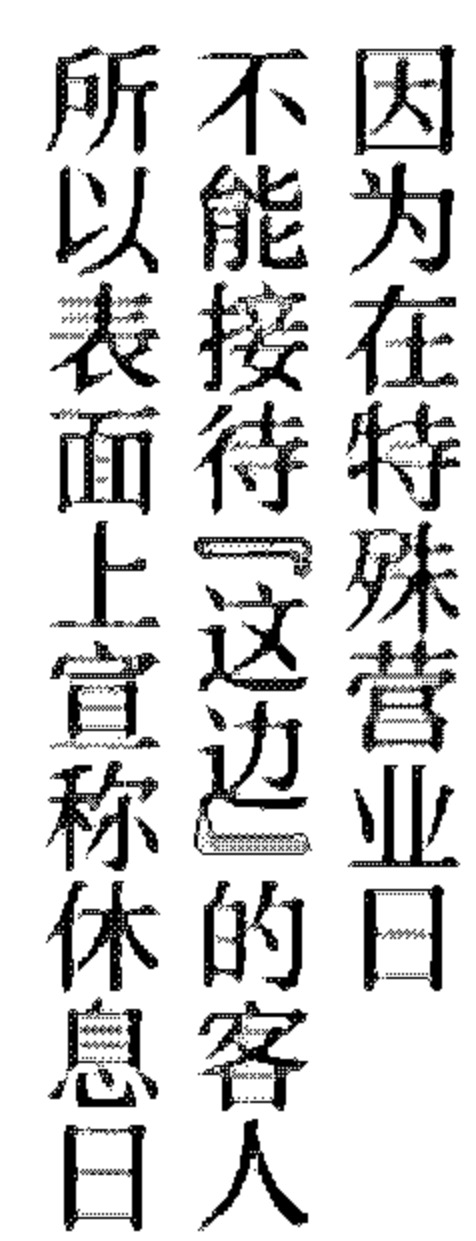 因为在特殊营业日
不能接待『这边』的客人
所以表面上宣称休息日